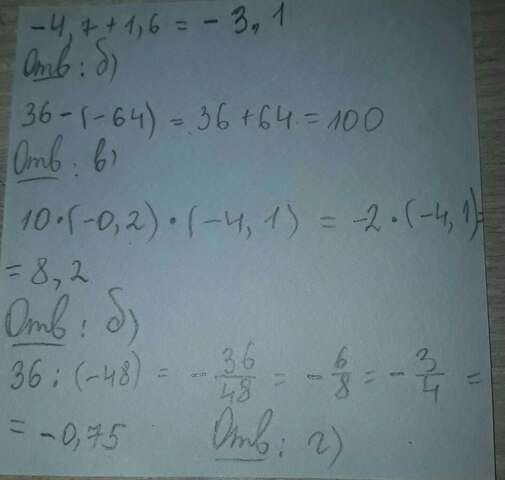 -4,7+1,6 = -3,1
Отв: б)
36-(-64) = 36+64 = 100
Отв: в)
10·(-0,2)·(-4,1) = -2·(-4,1)=
= 8,2
Отв: б)
36:(-48) = -36/48 = -6/8 = -3/4 =
= -0,75 Отв: г)